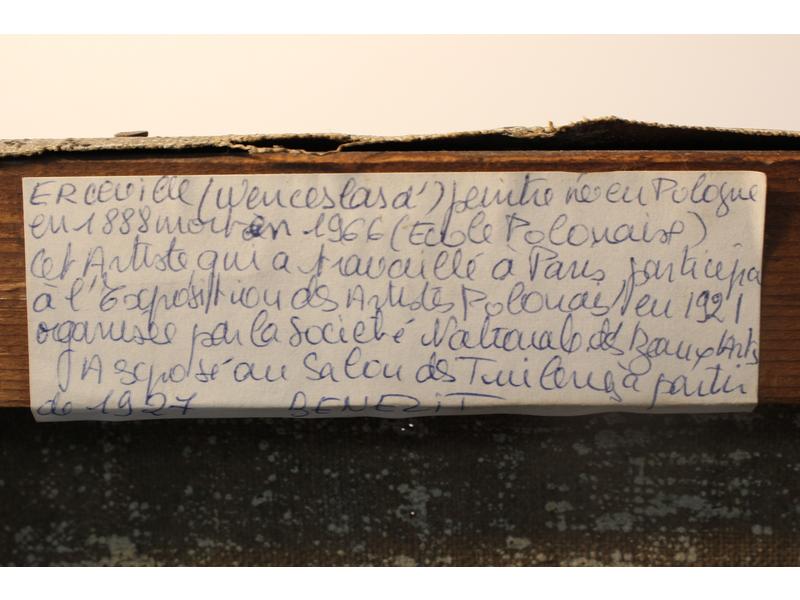 ERCEVILLE (Wenceslas d') peintre né en Pologne
en 1888 mort en 1966 (Ecole Polonaise)
Cet Artiste qui a travaillé à Paris, participa
à l'Exposition des Artistes Polonais, en 1921
organisée par la Société Nationale des Beaux Arts
A exposé au Salon des Tuileries à partir
de 1927 BENEZIT